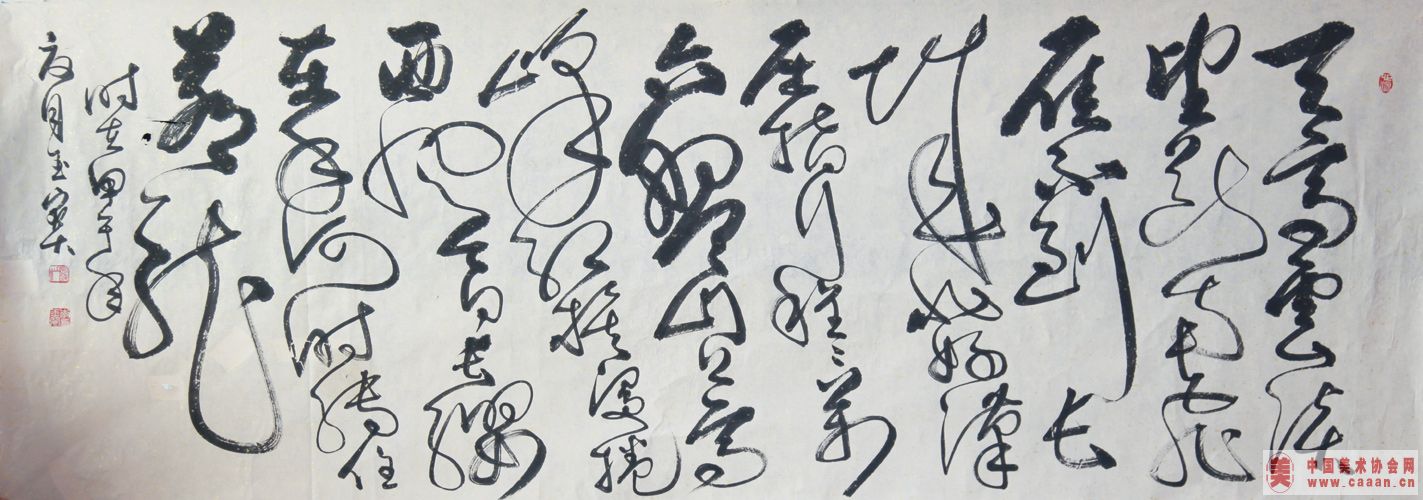 天高雲淡
望断南飛
雁不到长
城非好漢
屈指行程二万
六盤山上高
峰红旗漫捲
西风今日长缨
在手何时缚住
苍龙
时在甲午年
夏月
中国美术协会网
www.caaan.cn